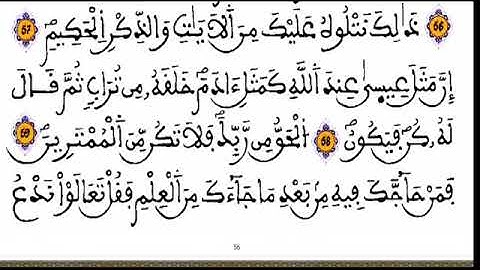 56 ذَٰلِكَ نَتْلُوهُ عَلَيْكَ مِنَ ٱلْأَيَٰتِ وَالذِّكْرِ اِلْحَكِيمِۖ 57
إِنَّ مَثَلَ عِيسىٰ عِندَ اَللَّهِ كَمَثَلِ ءَادَمَۖ خَلَقَهُۥ مِن تُرَابٖ ثُمَّ قَالَ
لَهُۥ كُن فَيَكُونُۖ 58 اُ۬لْحَقُّ مِن رَّبِّكَۖ فَلَا تَكُن مِّنَ اَ۬لْمُمْتَرِينَۖ 59
فَمَنْ حَآجَّكَ فِيهِ مِنۢ بَعْدِ مَا جَآءَكَ مِنَ اَ۬لْعِلْمِ فَقُلْ تَعَالَوْاْ نَدْعُ
56